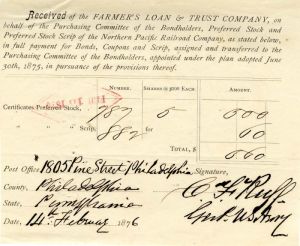 Received of the FARMER'S LOAN & TRUST COMPANY, on
behalf of the Purchasing Committee of the Bondholders, Preferred Stock and
Preferred Stock Scrip of the Northern Pacific Railroad Company, as stated below,
in full payment for Bonds, Coupons and Scrip, assigned and transferred to the
Purchasing Committee of the Bondholders, appointed under the plan adopted June
30th, 1875, in pursuance of the provisions thereof.
NUMBER. SHARES @ $100 EACH. AMOUNT.
Certificates Preferred Stock, 787 6 600
" " Scrip, 882 60
TOTAL, $ 660
Post Office, 1805 Pine Street Philadelphia Signature,
County, Philadelphia
State, Pennsylvania
Date, 14th Februar 1876